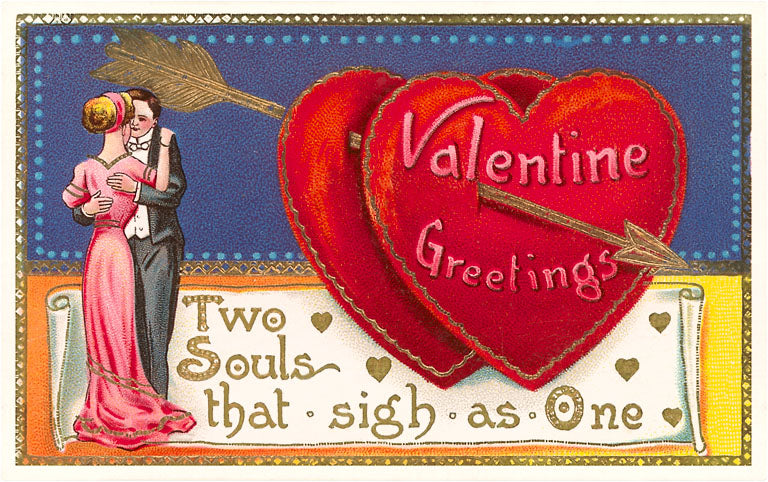 Valentine
Greetings
Two
Souls
that · sigh · as · One